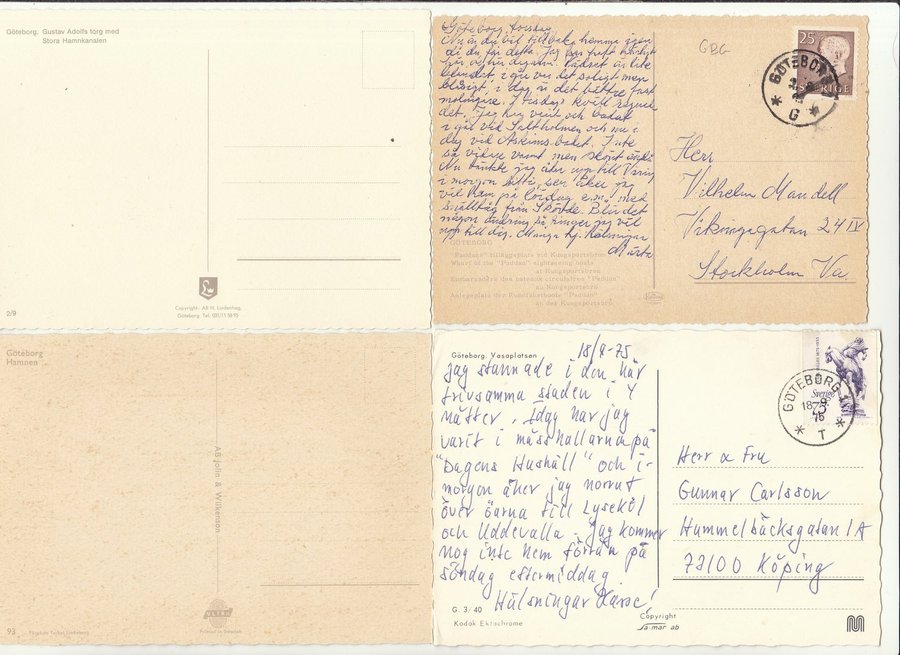 Göteborg. Gustav Adolfs torg med
Stora Hamnkanalen
2/9
Copyright: AB H. Lindenhag,
Göteborg. Tel. 031/11 58 93
Göteborg, torsdag
Nu är du väl tillbaka hemma igen
då du får detta. Jag har haft
här os här dagarna. Vädret är lite
blandat, i går var det soligt men
blåsigt, i dag är det bättre fast
molnigare. I tisdags kväll regnade
det. Jag har varit och badat
i går vid Saltholmen och nu i
dag vid Askimsbadet. Inte
så vidare varmt men skönt
Nu tänkte jag åka upp till
i morgon bitti, sen åker jag
väl hem på lördag e.m. med
snälltåg från Skövde. Blir det
någon ändring så ringer jag väl
upp till dig. Många hj. hälsningar
Märta
GÖTEBORG
"Paddans" tilläggsplats vid Kungsportsbron
Wharf of the "Paddan" sightseeing boats
at Kungsportsbron
Embarcadère des bateaux circulaires "Paddan"
au Kungsportsbron
Anlegeplatz der Rundfahrtboote "Paddan"
an der Kungsportsbron
GBG
25
SVERIGE
GÖTEBORG
G
Herr
Vilhelm Mandell
Vikingagatan 24 IV
Stockholm Va.
Göteborg
Hamnen
AB John & Wilkenson
ULTRA
Printed in Sweden
93
Göteborg. Vasaplatsen
18/9-75
Jag stannade i den här
trivsamma staden i 4
nätter. Idag har jag
varit i mässhallarna på
"Dagens Hushåll" och i-
morgon åker jag norrut
över öarna till Lysekil
och Uddevalla. Jag kommer
nog inte hem förrän på
söndag eftermiddag.
Hälsningar Lasse!
G. 3/40
Kodak Ektachrome
Copyright
Sa-mar ab
Sverige
GÖTEBORG 1
T
Herr o Fru
Gunnar Carlsson
Hummelbäcksgatan 1A
73100 Köping